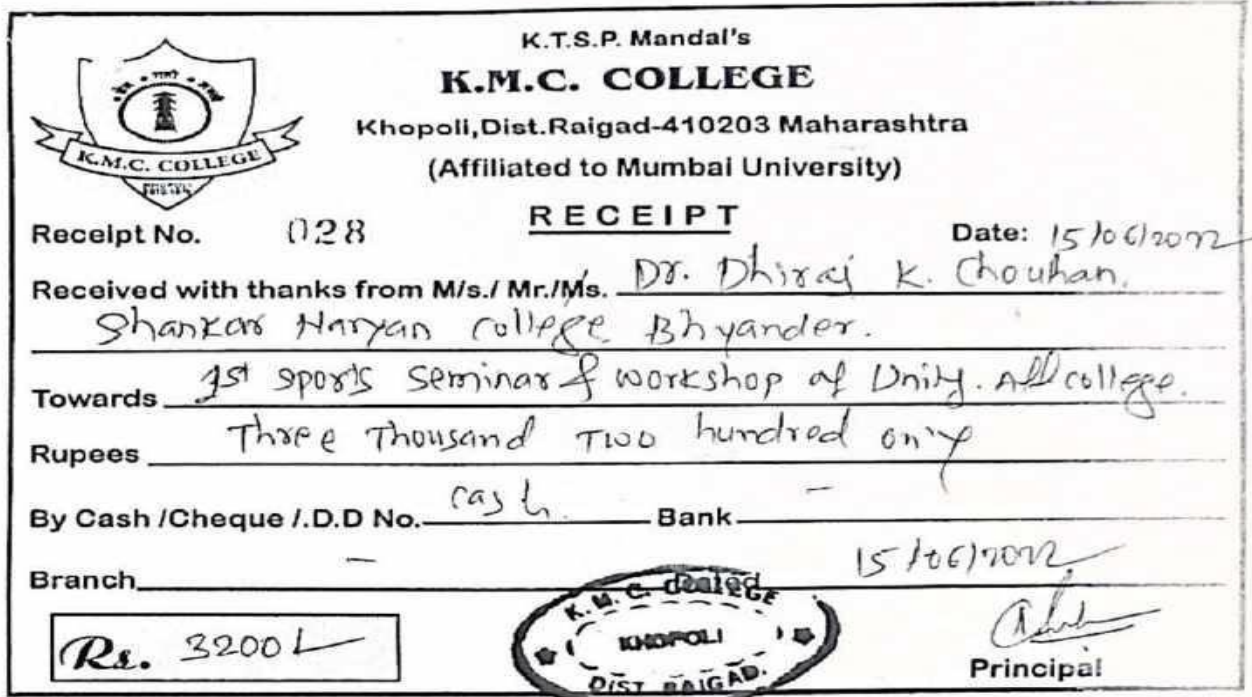 K.T.S.P. Mandal's
K.M.C. COLLEGE
Khopoli,Dist.Raigad-410203 Maharashtra
(Affiliated to Mumbai University)
K.M.C. COLLEGE
RECEIPT
Receipt No. 028 Date: 15/06/2022
Received with thanks from M/s./ Mr./Ms. Dr. Dhiraj K. Chouhan,
Shankar Naryan College Bhyander.
Towards 1st sports seminar & workshop of Unity. All college.
Rupees Three Thousand Two hundred only
By Cash /Cheque /.D.D No. cash Bank -
Branch - Dated 15/06/2022
K. M. C. COLLEGE
KHOPOLI
DIST. RAIGAD.
Rs. 3200/-
Principal